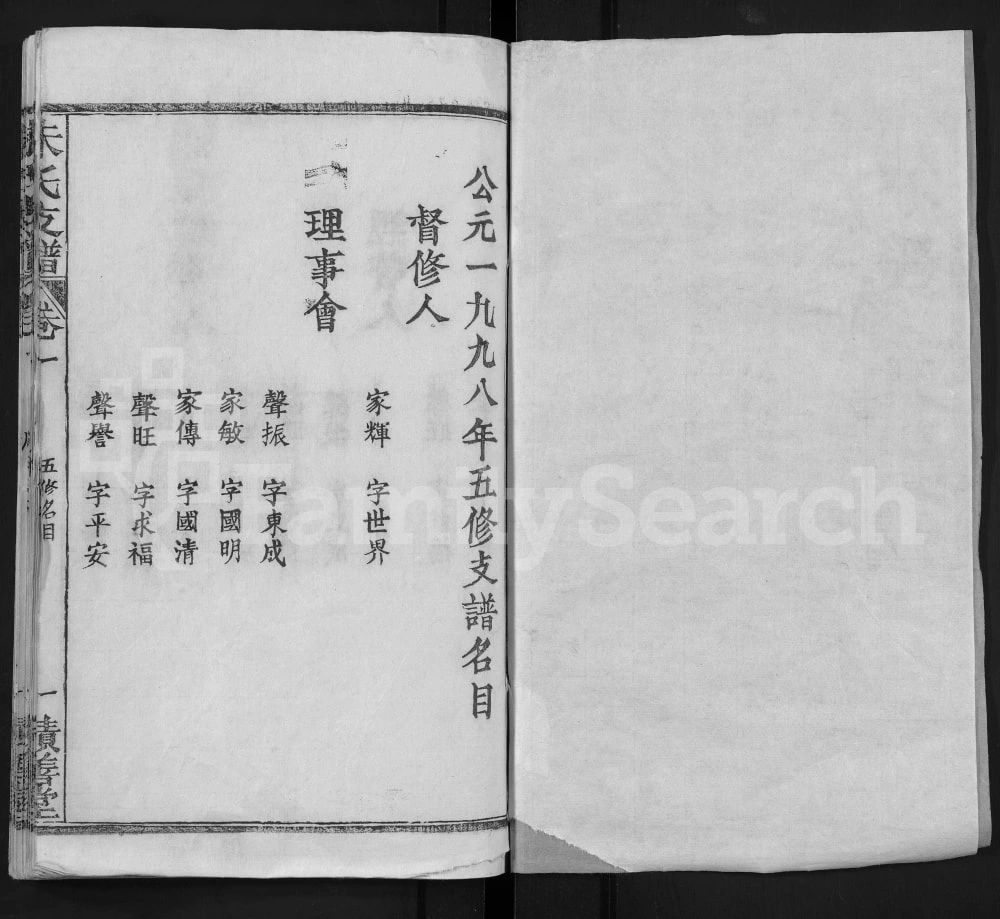 公元一九九八年五修支譜名目
督修人
家輝 字世界
理事會
聲振 字東成
家敏 字國明
家傳 字國清
聲旺 字求福
聲譽 字平安
朱氏支譜 卷一 五修名目 一 積善堂
FamilySearch